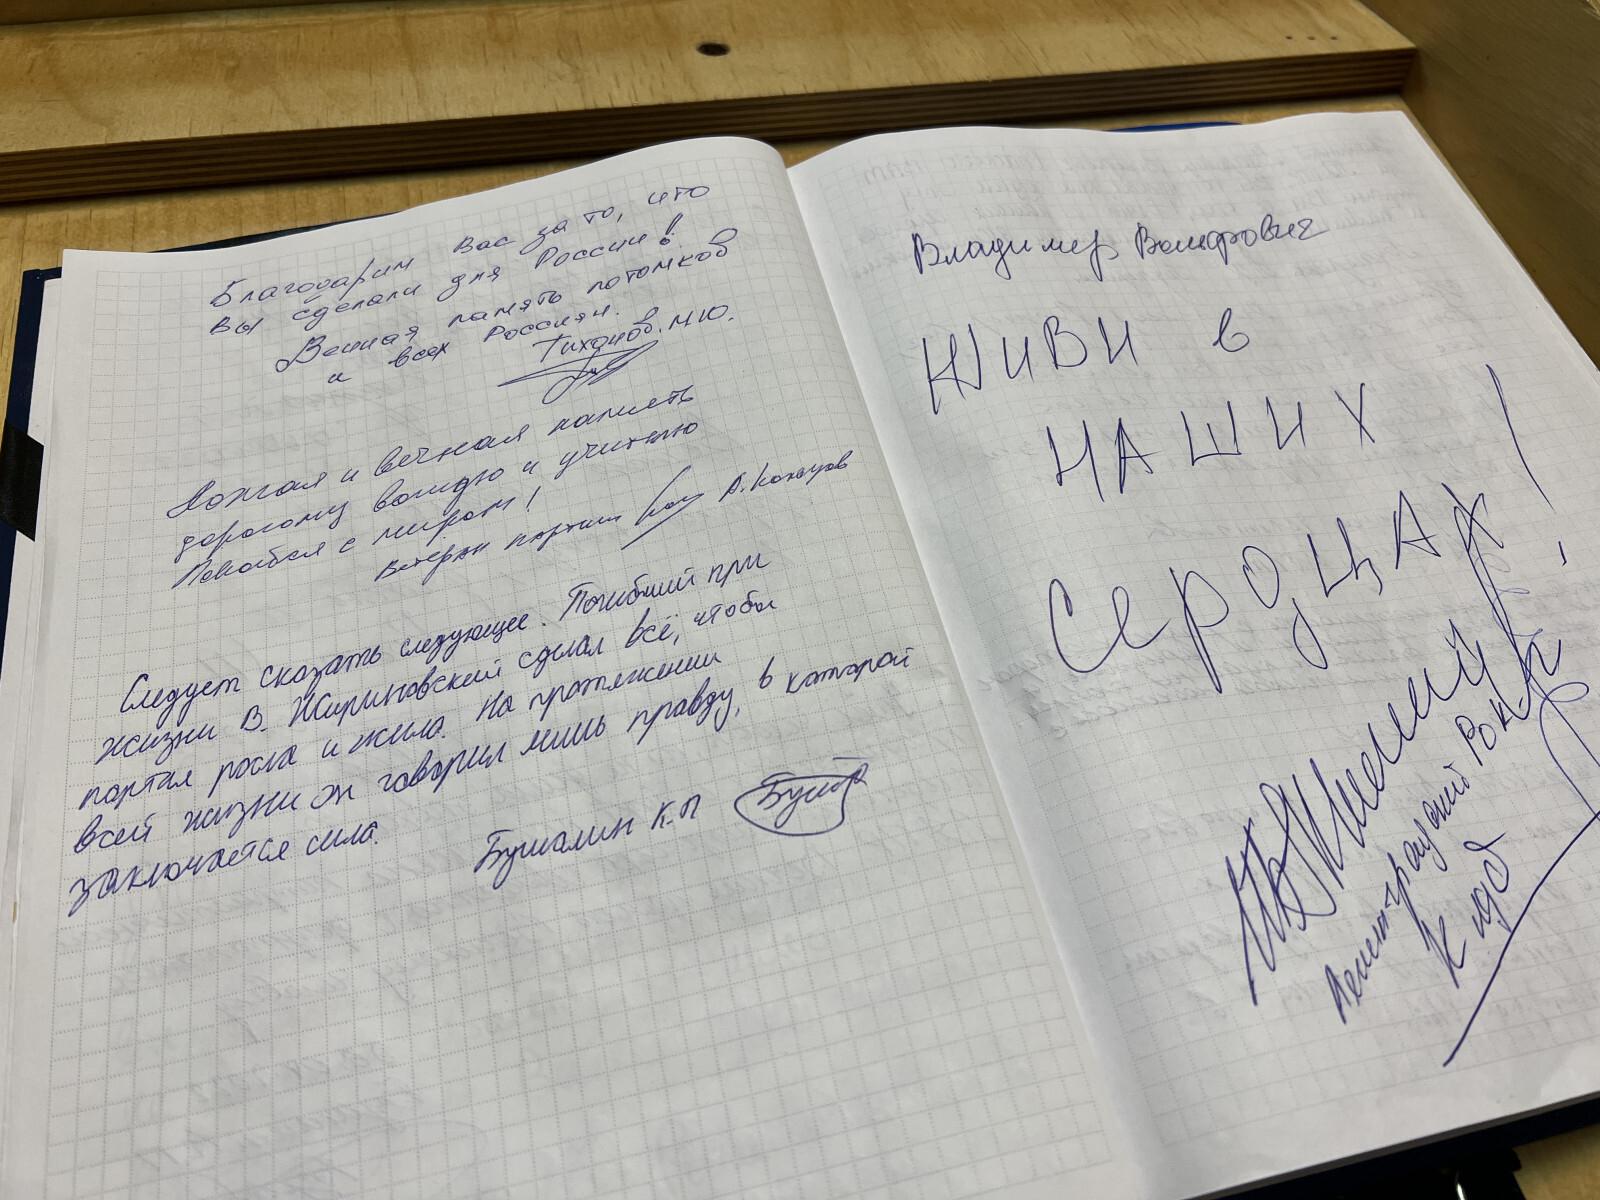 Благодарим Вас за то, что
Вы сделали для России!
Вечная память потомков
и всех Россиян.
Тихонов М.Ю.
Долгая и вечная память
дорогому вождю и учителю
Покойся с миром!
Ветеран партии А.
Следует сказать следующее. Погибший при
жизни В. Жириновский сделал всё, чтобы
партия росла и жила. На протяжении
всей жизни он говорил лишь правду, в которой
заключается сила.
Бушалин К.П
Владимир Вольфович
ЖИВИ в
НАШИХ
СЕРДЦАХ!
Ленинградский Рок
Клуб